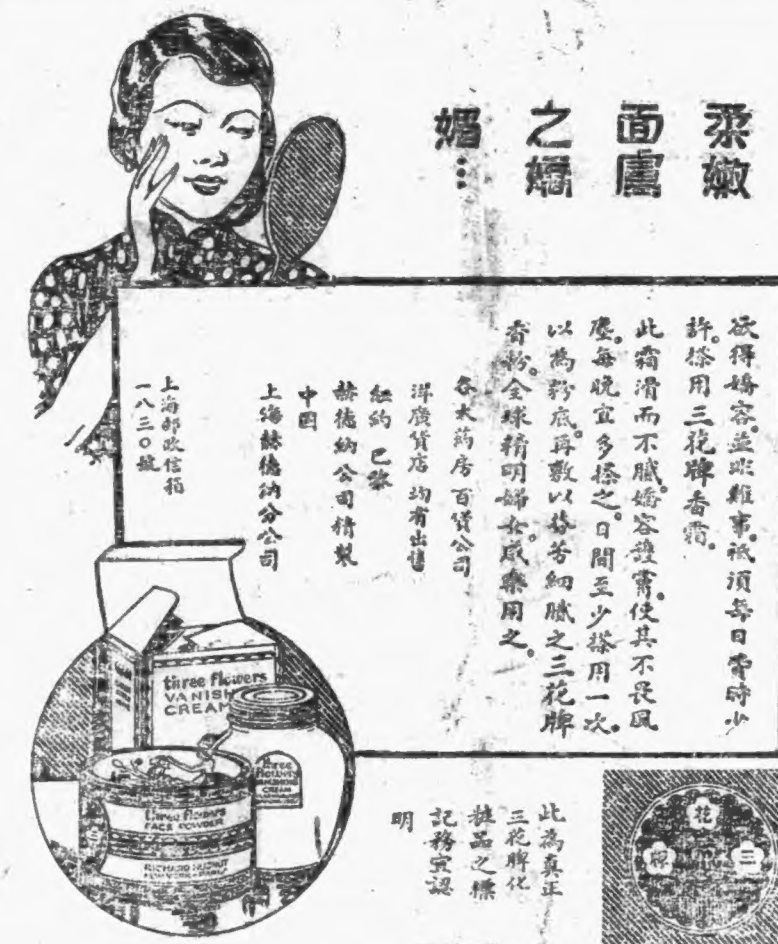 柔嫩
面龐
之嬌
媚⋮
欲得嬌容。並非難事。祗須每日費時少
許。搽用三花牌香霜。
此霜滑而不膩。嬌容護膚。使其不畏風
塵。每晚宜多搽之。日間至少搽用一次。
以為粉底。再敷以芬芳細膩之三花牌
香粉。全球精明婦女。咸樂用之。
各大葯房百貨公司
洋廣貨店均有出售
紐約 巴黎
赫德納公司精製
中國
上海赫德納分公司
上海郵政信箱
一八三〇號
three flowers
VANISH
CREAM
three
flowers
VANISHING
CREAM
three flowers
FACE POWDER
RICHARD HUDNUT
NEW YORK PARIS
此為真正
三花牌化
粧品之標
記務宜認
明
三
花
牌